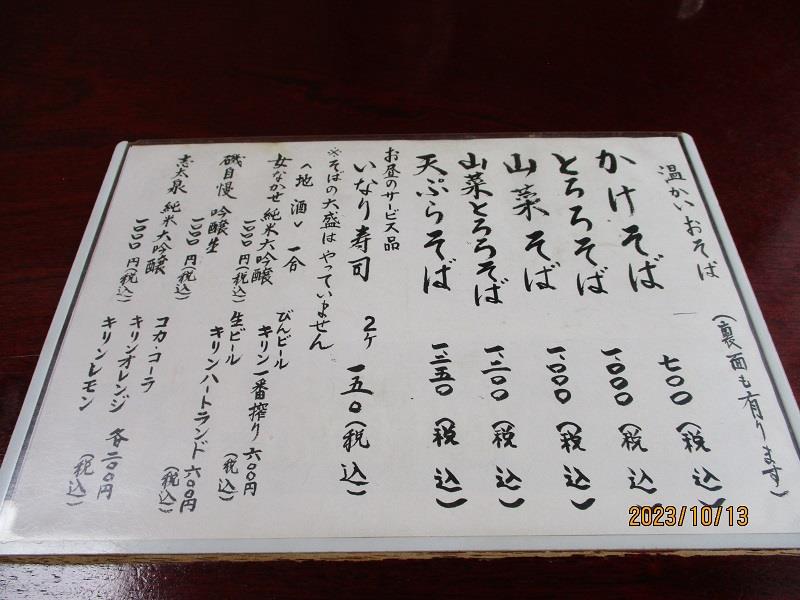 温かいおそば
(裏面も有ります)
かけそば 七〇〇(税込)
とろろそば 一、〇〇〇(税込)
山菜そば 一、〇〇〇(税込)
山菜とろろそば 一、二〇〇(税込)
天ぷらそば 一、三五〇(税込)
お昼のサービス品
いなり寿司 2ケ 一五〇(税込)
※そばの大盛はやっていません
〈地酒〉 一合
女なかせ 純米大吟醸
一〇〇〇円(税込)
磯自慢 吟醸生
一〇〇〇円(税込)
志太泉 純米大吟醸
一〇〇〇円(税込)
びんビール
キリン一番搾り 六〇〇円
(税込)
生ビール
キリンハートランド 六〇〇円
(税込)
コカ・コーラ
キリンオレンジ 各二〇〇円
キリンレモン (税込)
2023/10/13